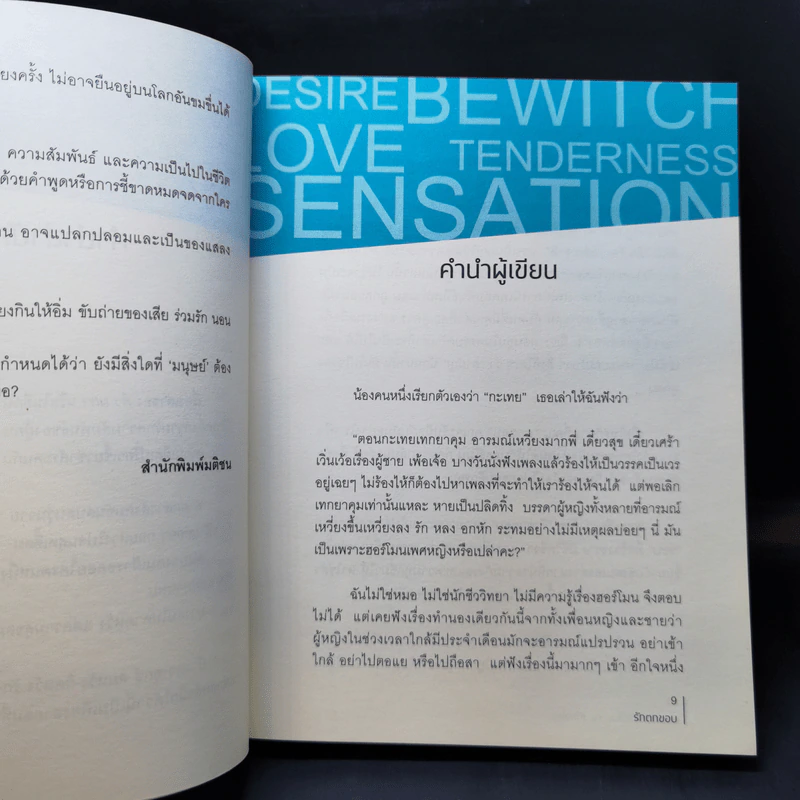 ยงครั้ง ไม่อาจยืนอยู่บนโลกอันขมขื่นได้
ความสัมพันธ์ และความเป็นไปในชีวิต
ด้วยคำพูดหรือการชี้ขาดหมดจดจากใคร
น อาจแปลกปลอมและเป็นของแสลง
ยงกินให้อิ่ม ขับถ่ายของเสีย ร่วมรัก นอน
กำหนดได้ว่า ยังมีสิ่งใดที่ ‘มนุษย์’ ต้อง
อ?
สำนักพิมพ์มติชน
DESIRE BEWITCH
LOVE TENDERNESS
SENSATION
คำนำผู้เขียน
น้องคนหนึ่งเรียกตัวเองว่า “กะเทย” เธอเล่าให้ฉันฟังว่า
“ตอนกะเทยเทกยาคุม อารมณ์เหวี่ยงมากพี่ เดี๋ยวสุข เดี๋ยวเศร้า
เวิ่นเว้อเรื่องผู้ชาย เพ้อเจ้อ บางวันนั่งฟังเพลงแล้วร้องไห้เป็นวรรคเป็นเวร
อยู่เฉยๆ ไม่ร้องไห้ก็ต้องไปหาเพลงที่จะทำให้เราร้องไห้จนได้ แต่พอเลิก
เทกยาคุมเท่านั้นแหละ หายเป็นปลิดทิ้ง บรรดาผู้หญิงทั้งหลายที่อารมณ์
เหวี่ยงขึ้นเหวี่ยงลง รัก หลง อกหัก ระทมอย่างไม่มีเหตุผลบ่อยๆ นี่ มัน
เป็นเพราะฮอร์โมนเพศหญิงหรือเปล่าคะ?”
ฉันไม่ใช่หมอ ไม่ใช่นักชีววิทยา ไม่มีความรู้เรื่องฮอร์โมน จึงตอบ
ไม่ได้ แต่เคยฟังเรื่องทำนองเดียวกันนี้จากทั้งเพื่อนหญิงและชายว่า
ผู้หญิงในช่วงเวลาใกล้มีประจำเดือนมักจะอารมณ์แปรปรวน อย่าเข้า
ใกล้ อย่าไปตอแย หรือไปถือสา แต่ฟังเรื่องนี้มามากๆ เข้า อีกใจหนึ่ง
9
รักตกขอบ